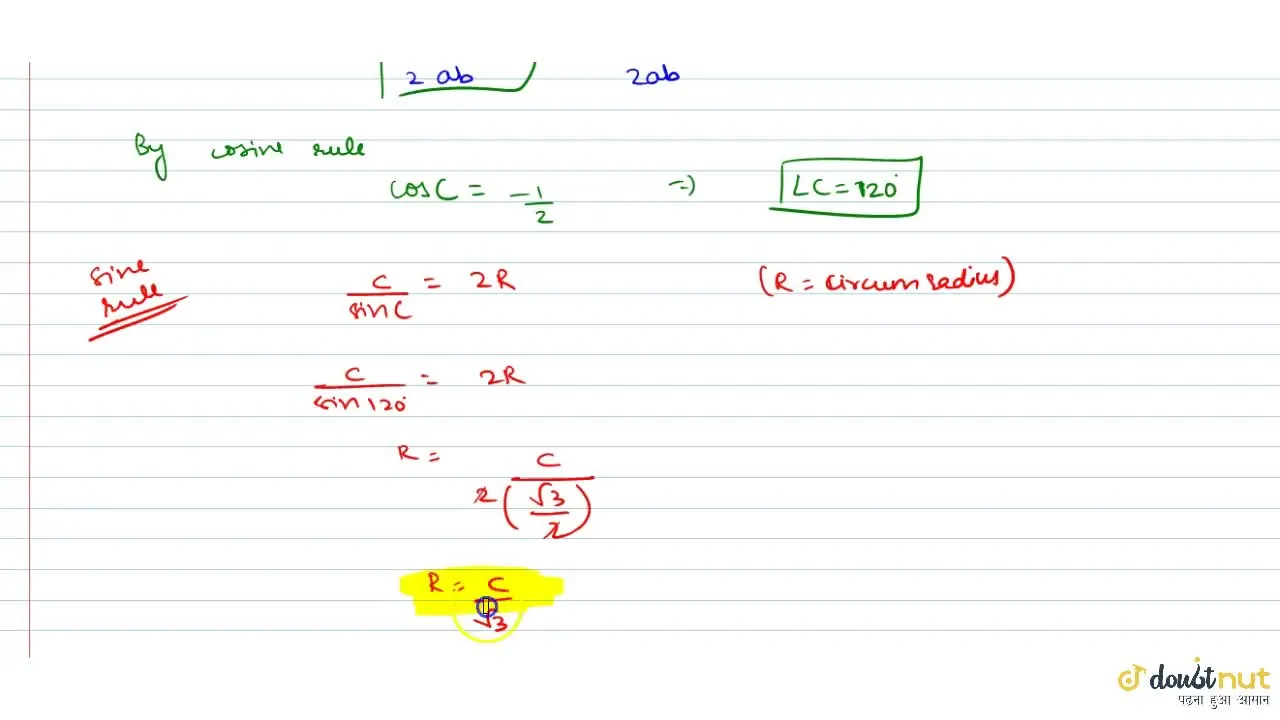 2 ab 2ab
By cosine rule
cos C = -1/2 => ∠C = 120°
sine rule
c/sin C = 2R (R = circumradius)
c/sin 120° = 2R
R = c/2(√3/2)
R = c/√3
doubtnut
पढ़ना हुआ आसान